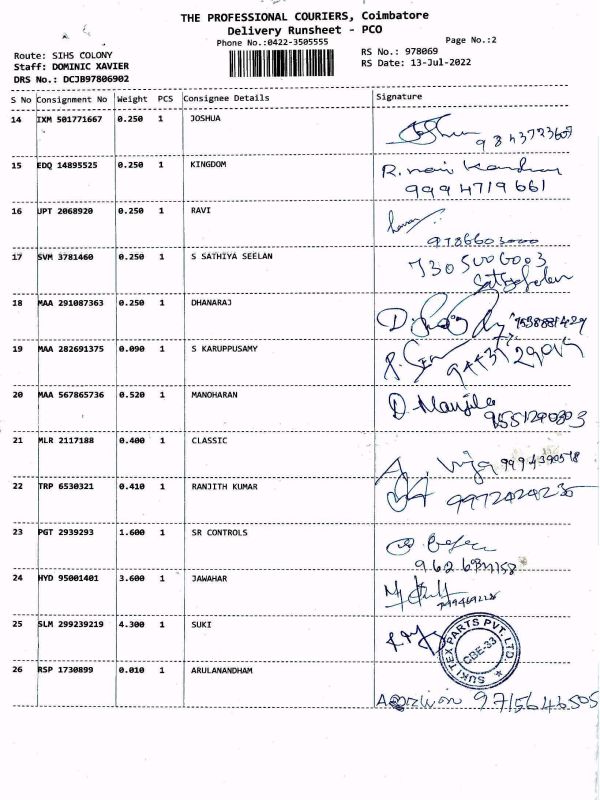 THE PROFESSIONAL COURIERS, Coimbatore
Delivery Runsheet - PCO
Phone No.:0422-3505555
Page No.:2
Route: SIHS COLONY
RS No.: 978069
Staff: DOMINIC XAVIER
RS Date: 13-Jul-2022
DRS No.: DCJB97806902
S No Consignment No Weight PCS Consignee Details Signature
14 IXM 501771667 0.250 1 JOSHUA
9843723607
15 EDQ 14895525 0.250 1 KINGDOM
R.
9994719661
16 UPT 2068920 0.250 1 RAVI
9786603000
17 SVM 3781460 0.250 1 S SATHIYA SEELAN
7305006003
18 MAA 291087363 0.250 1 DHANARAJ
19 MAA 282691375 0.090 1 S KARUPPUSAMY
20 MAA 567865736 0.520 1 MANOHARAN
D.
21 MLR 2117188 0.400 1 CLASSIC
22 TRP 6530321 0.410 1 RANJITH KUMAR
23 PGT 2939293 1.600 1 SR CONTROLS
24 HYD 95001401 3.600 1 JAWAHAR
25 SLM 299239219 4.300 1 SUKI
SUKI TEX PARTS PVT. LTD.
CBE-33
26 RSP 1730899 0.010 1 ARULANANDHAM
9715646505